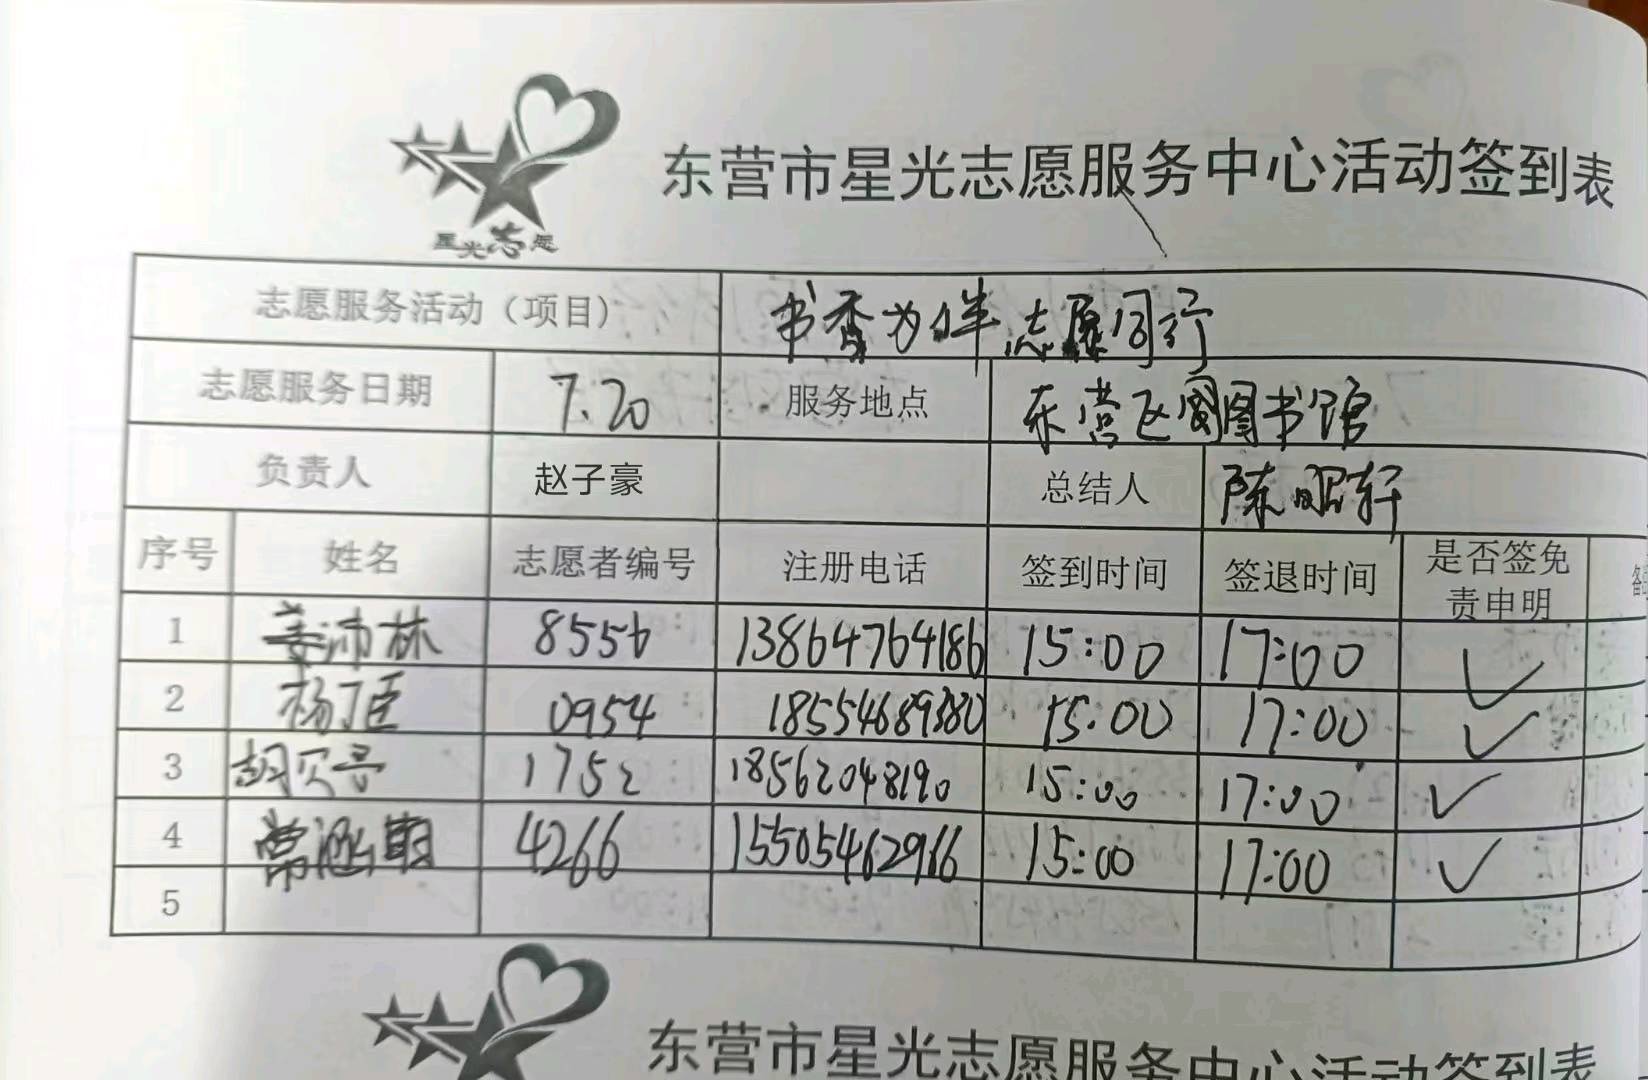 东营市星光志愿服务中心活动签到表
星光志愿
志愿服务活动（项目） 书香为伴志愿同行
志愿服务日期 7.20 服务地点 东营区图书馆
负责人 赵子豪 总结人 陈昭轩
序号 姓名 志愿者编号 注册电话 签到时间 签退时间 是否签免责申明
1 姜沛林 8556 13864764186 15:00 17:00 ✓
2 0954 18554689380 15:00 17:00 ✓
3 1752 18562048190 15:00 17:00 ✓
4 4266 15505462966 15:00 17:00 ✓
5
东营市星光志愿服务中心活动签到表